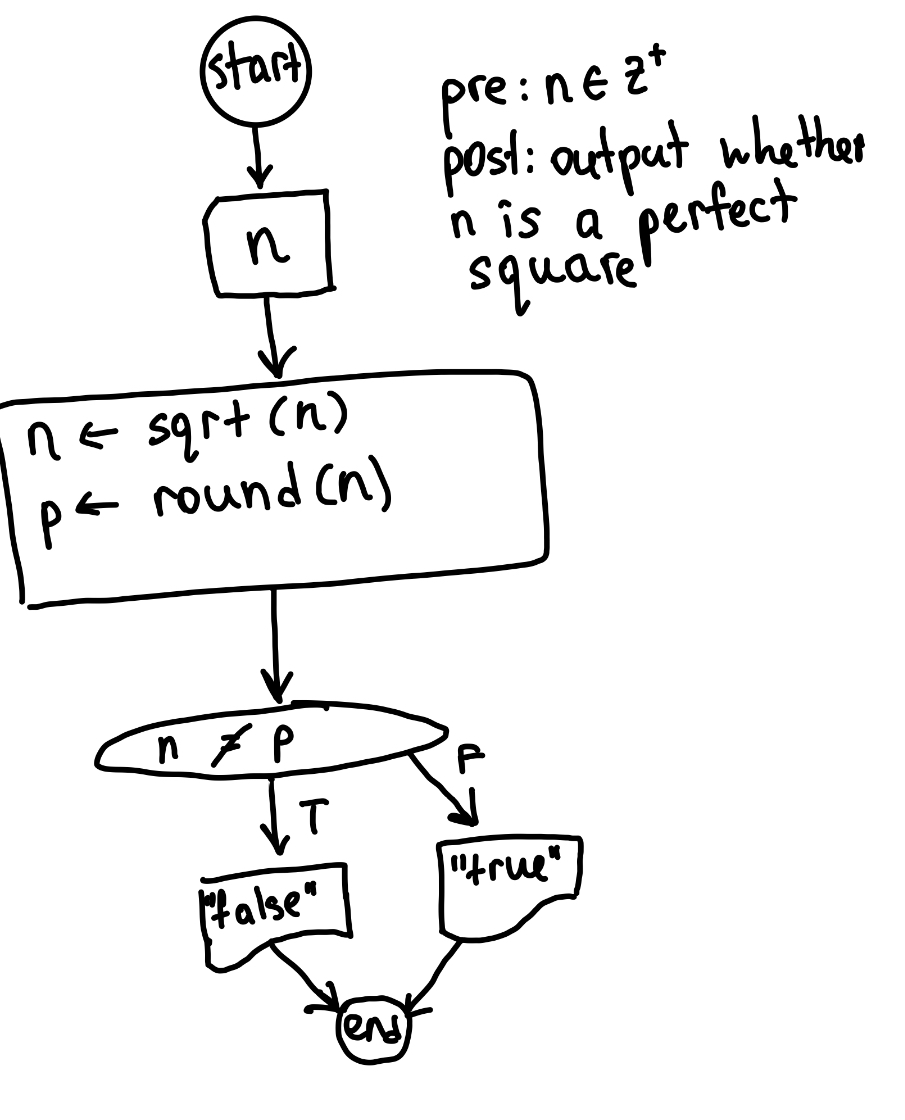 start
pre: n ∈ Z⁺
post: output whether
n is a perfect
square
n
n ← sqrt (n)
p ← round (n)
n ≠ p
T
F
"false"
"true"
end